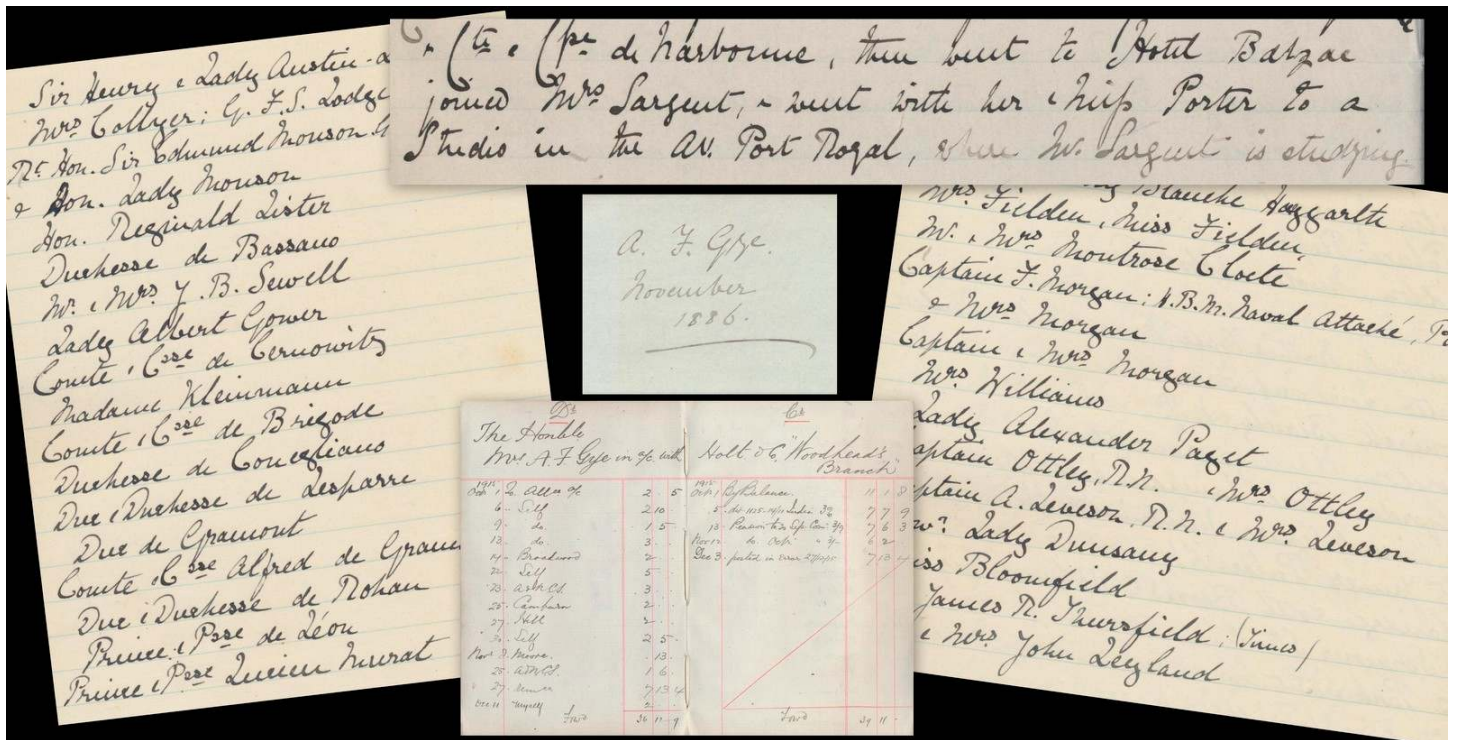 Sir Henry & Lady Austin-
Mrs Collyer; G. F. S. Lodge
Rt. Hon. Sir Edmund Monson
& Hon. Lady Monson
Hon. Reginald Lister
Duchesse de Bassano
Mr. & Mrs J. B. Sewell
Lady Albert Gower
Comte & Csse de Cernowitz
Madame Kleinmann
Comte & Csse de Brigode
Duchesse de Conegliano
Duc & Duchesse de Lesparre
Duc de Gramont
Comte & Csse Alfred de Gram
Duc & Duchesse de Rohan
Prince & Psse de Léon
Prince & Psse Lucien Murat
" Cte & Csse de Narbonne, then went to Hotel Balzac
joined Mrs Sargent, & went with her & Miss Porter to a
Studio in the Av. Port Royal, where Mr. Sargent is studying.
A. F. Gye.
November
1886.
Dr
The Honble
Mrs A. F. Gye in a/c with
1912
Self 2 10
do 1 5
13 do 3
14 Broadwood 2
Self 5
2 5
Novr
Myself 2
Fowd
Cr
Holt & Co "Woodhead's
Branch"
1912
Octr 1 By Balance 11 1 8
7 7 9
7 6 3
6 2
Dec 3 posted in error
Fowd
Blanche Haggarth
Mrs Fielden, Miss Fielden
Mr. & Mrs Montrose Cloete
Captain F. Morgan; H.B.M. Naval Attaché, P
& Mrs Morgan
Captain & Mrs Morgan
Mrs Williams
Lady Alexander Paget
aptain Ottley, R.N. & Mrs Ottley
ptain A. Leveson, R.N. & Mrs Leveson
Lady Dunsany
iss Bloomfield
James R. Thursfield; (Times)
& Mrs John Leyland